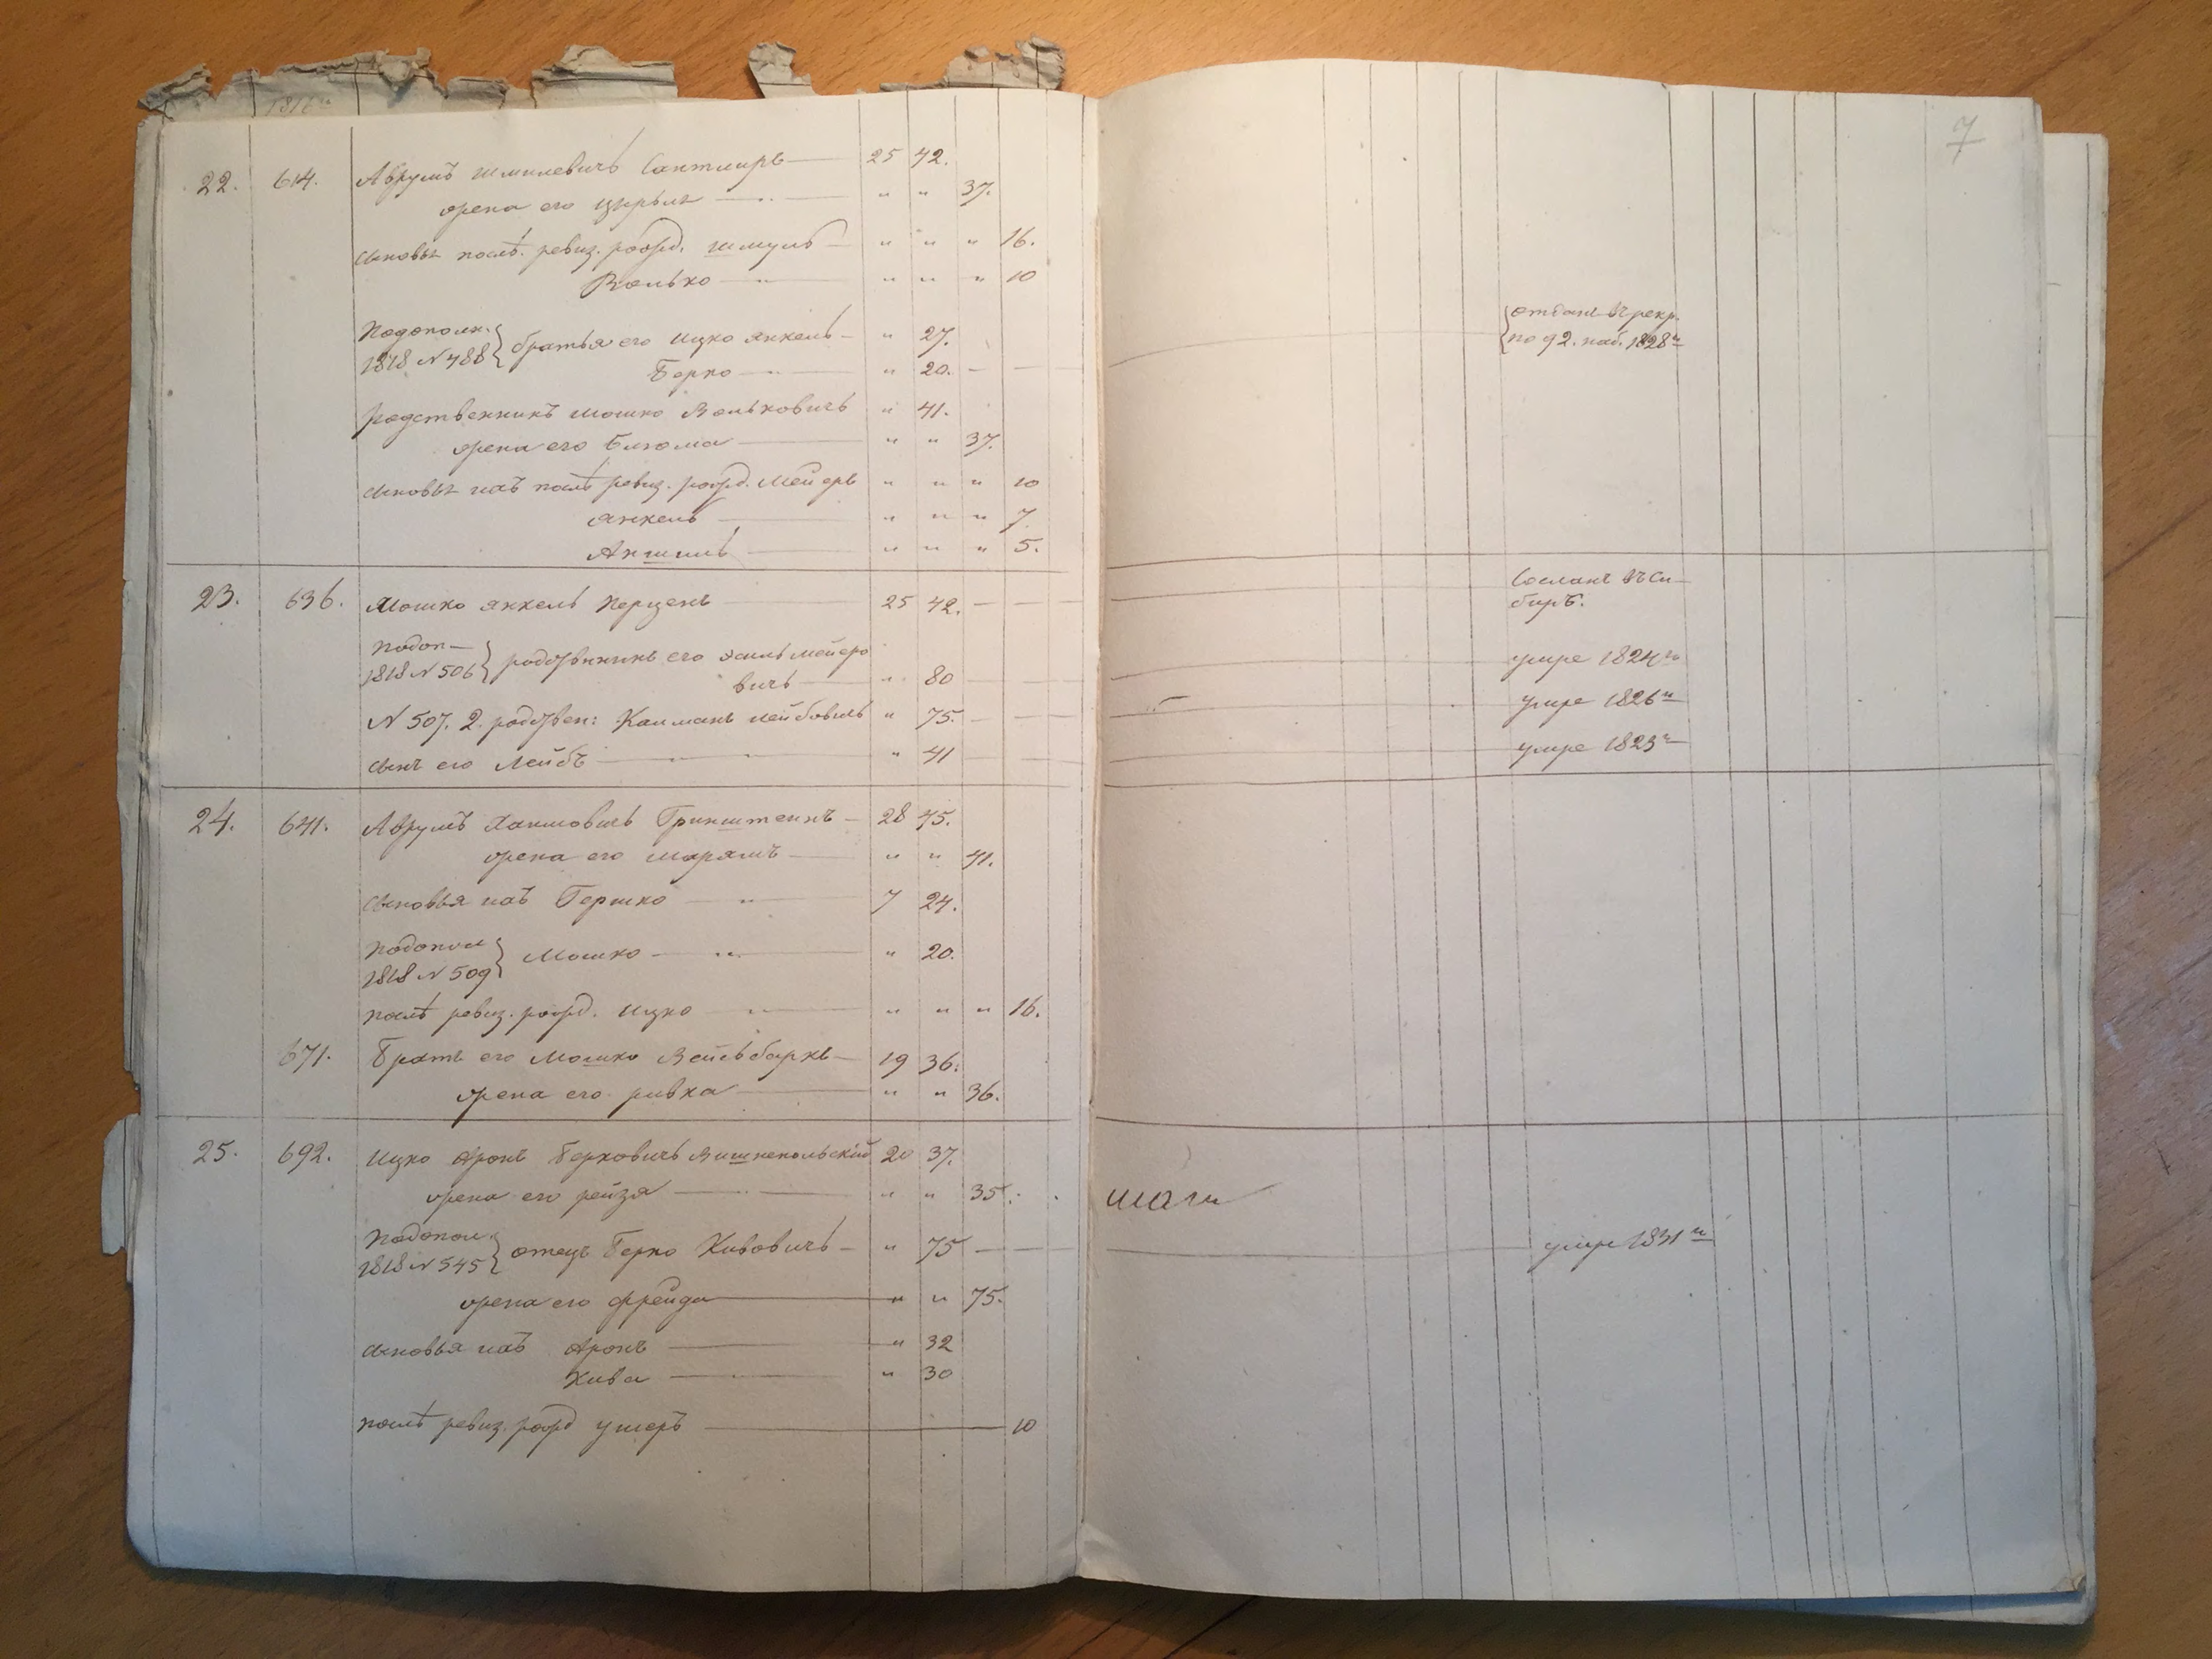 1816 г
7
22. 614. Аврумъ Шмилевичъ Сантлиръ 25 42.
жена его Цирыля " " 37.
сыновья послѣ ревиз. рожд. Шмуль " " " 16.
Волько " " " 10
Подополн. 1818 N 488 братья его Ицко Янкель " 27.
отданъ въ рекр.
по 92. наб. 1828 г
Берко " 20.
родственникъ Мошко Вольковичъ " 41.
жена его Блюма " " 37.
сыновья ихъ послѣ ревиз. рожд. Мейеръ " " " 10
Янкель " " " 7
Аншиль " " " 5.
23. 636. Мошко Янкель Перцень 25 42.
Сосланъ въ Си-
биръ.
Подоп 1818 N 506 родственникъ его Хаиль Мейеро
вичъ " 80 умре 1824 г
N 507. 2. родствен: Калманъ Лейбовичъ " 75. умре 1826 г
сынъ его Лейбъ " 41 умре 1823 г
24. 641. Аврумъ Хаимовичъ Гринштейнъ 28 45.
жена его Марямъ " " 41.
сыновья ихъ Гершко 7 24.
Подопол 1818 N 509 Мошко " 20.
послѣ ревиз. рожд. Ицко " " " 16.
671. Братъ его Мошко Вайсбаркъ 19 36.
жена его Ривка " " 36.
25. 692. Ицко Аронъ Берковичъ Вишнепольскій 20 37.
жена его Рейзя " " 35.
Подопол. 1818 N 545 отецъ Берко Кивовичъ " 75 умре 1831 г
жена его Фрейда " " 75.
сыновья ихъ Аронъ " 32
Кива " 30
послѣ ревиз. рожд Ушеръ 10